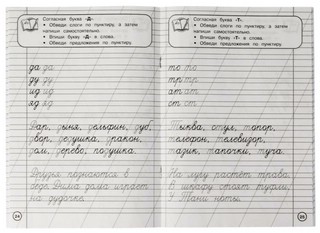 Согласная буква «Д».
• Обведи слоги по пунктиру, а затем напиши самостоятельно.
• Впиши букву «Д» в слова.
• Обведи предложения по пунктиру.
да да
ду ду
ид ид
яд яд
Дар, дыня, дельфин, дуб,
двор, дедушка, дракон,
дом, дерево, подушка.
Друзья познаются в
беде. Дима дома играет
на дудочке.
24
Согласная буква «Т».
• Обведи слоги по пунктиру, а затем напиши самостоятельно.
• Впиши букву «Т» в слова.
• Обведи предложения по пунктиру.
то то
тр тр
ат ат
ст ст
Тыква, стул, топор,
телефон, телевизор,
тазик, тапочки, туча.
На лугу растёт трава.
В шкафу стоят туфли.
У Тани ноты.
25